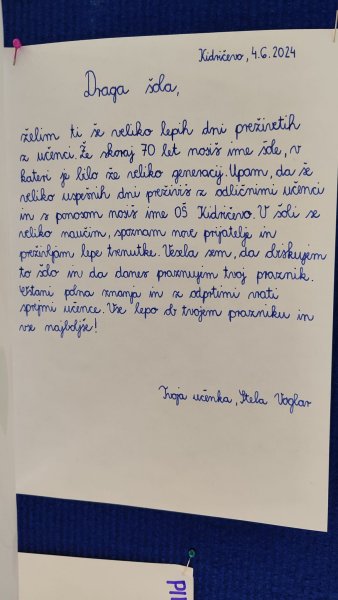 Kidričevo, 4.6.2024
Draga šola,
želim ti še veliko lepih dni preživetih
z učenci. Že skoraj 70 let nosiš ime šole, v
kateri je bilo že veliko generacij. Upam, da še
veliko uspešnih dni preživiš z odličnimi učenci
in s ponosom nosiš ime OŠ Kidričevo. V šoli se
veliko naučim, spoznam nove prijatelje in
preživljam lepe trenutke. Vesela sem, da obiskujem
to šolo in da danes praznujem tvoj praznik.
Ostani polna znanja in z odprtimi vrati
sprejmi učence. Vse lepo ob tvojem prazniku in
vse najboljše!
Tvoja učenka, Stela Voglar